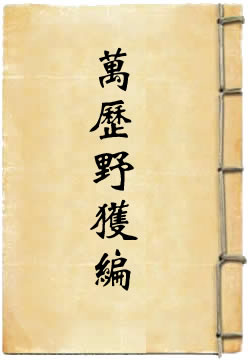 萬歷野獲編